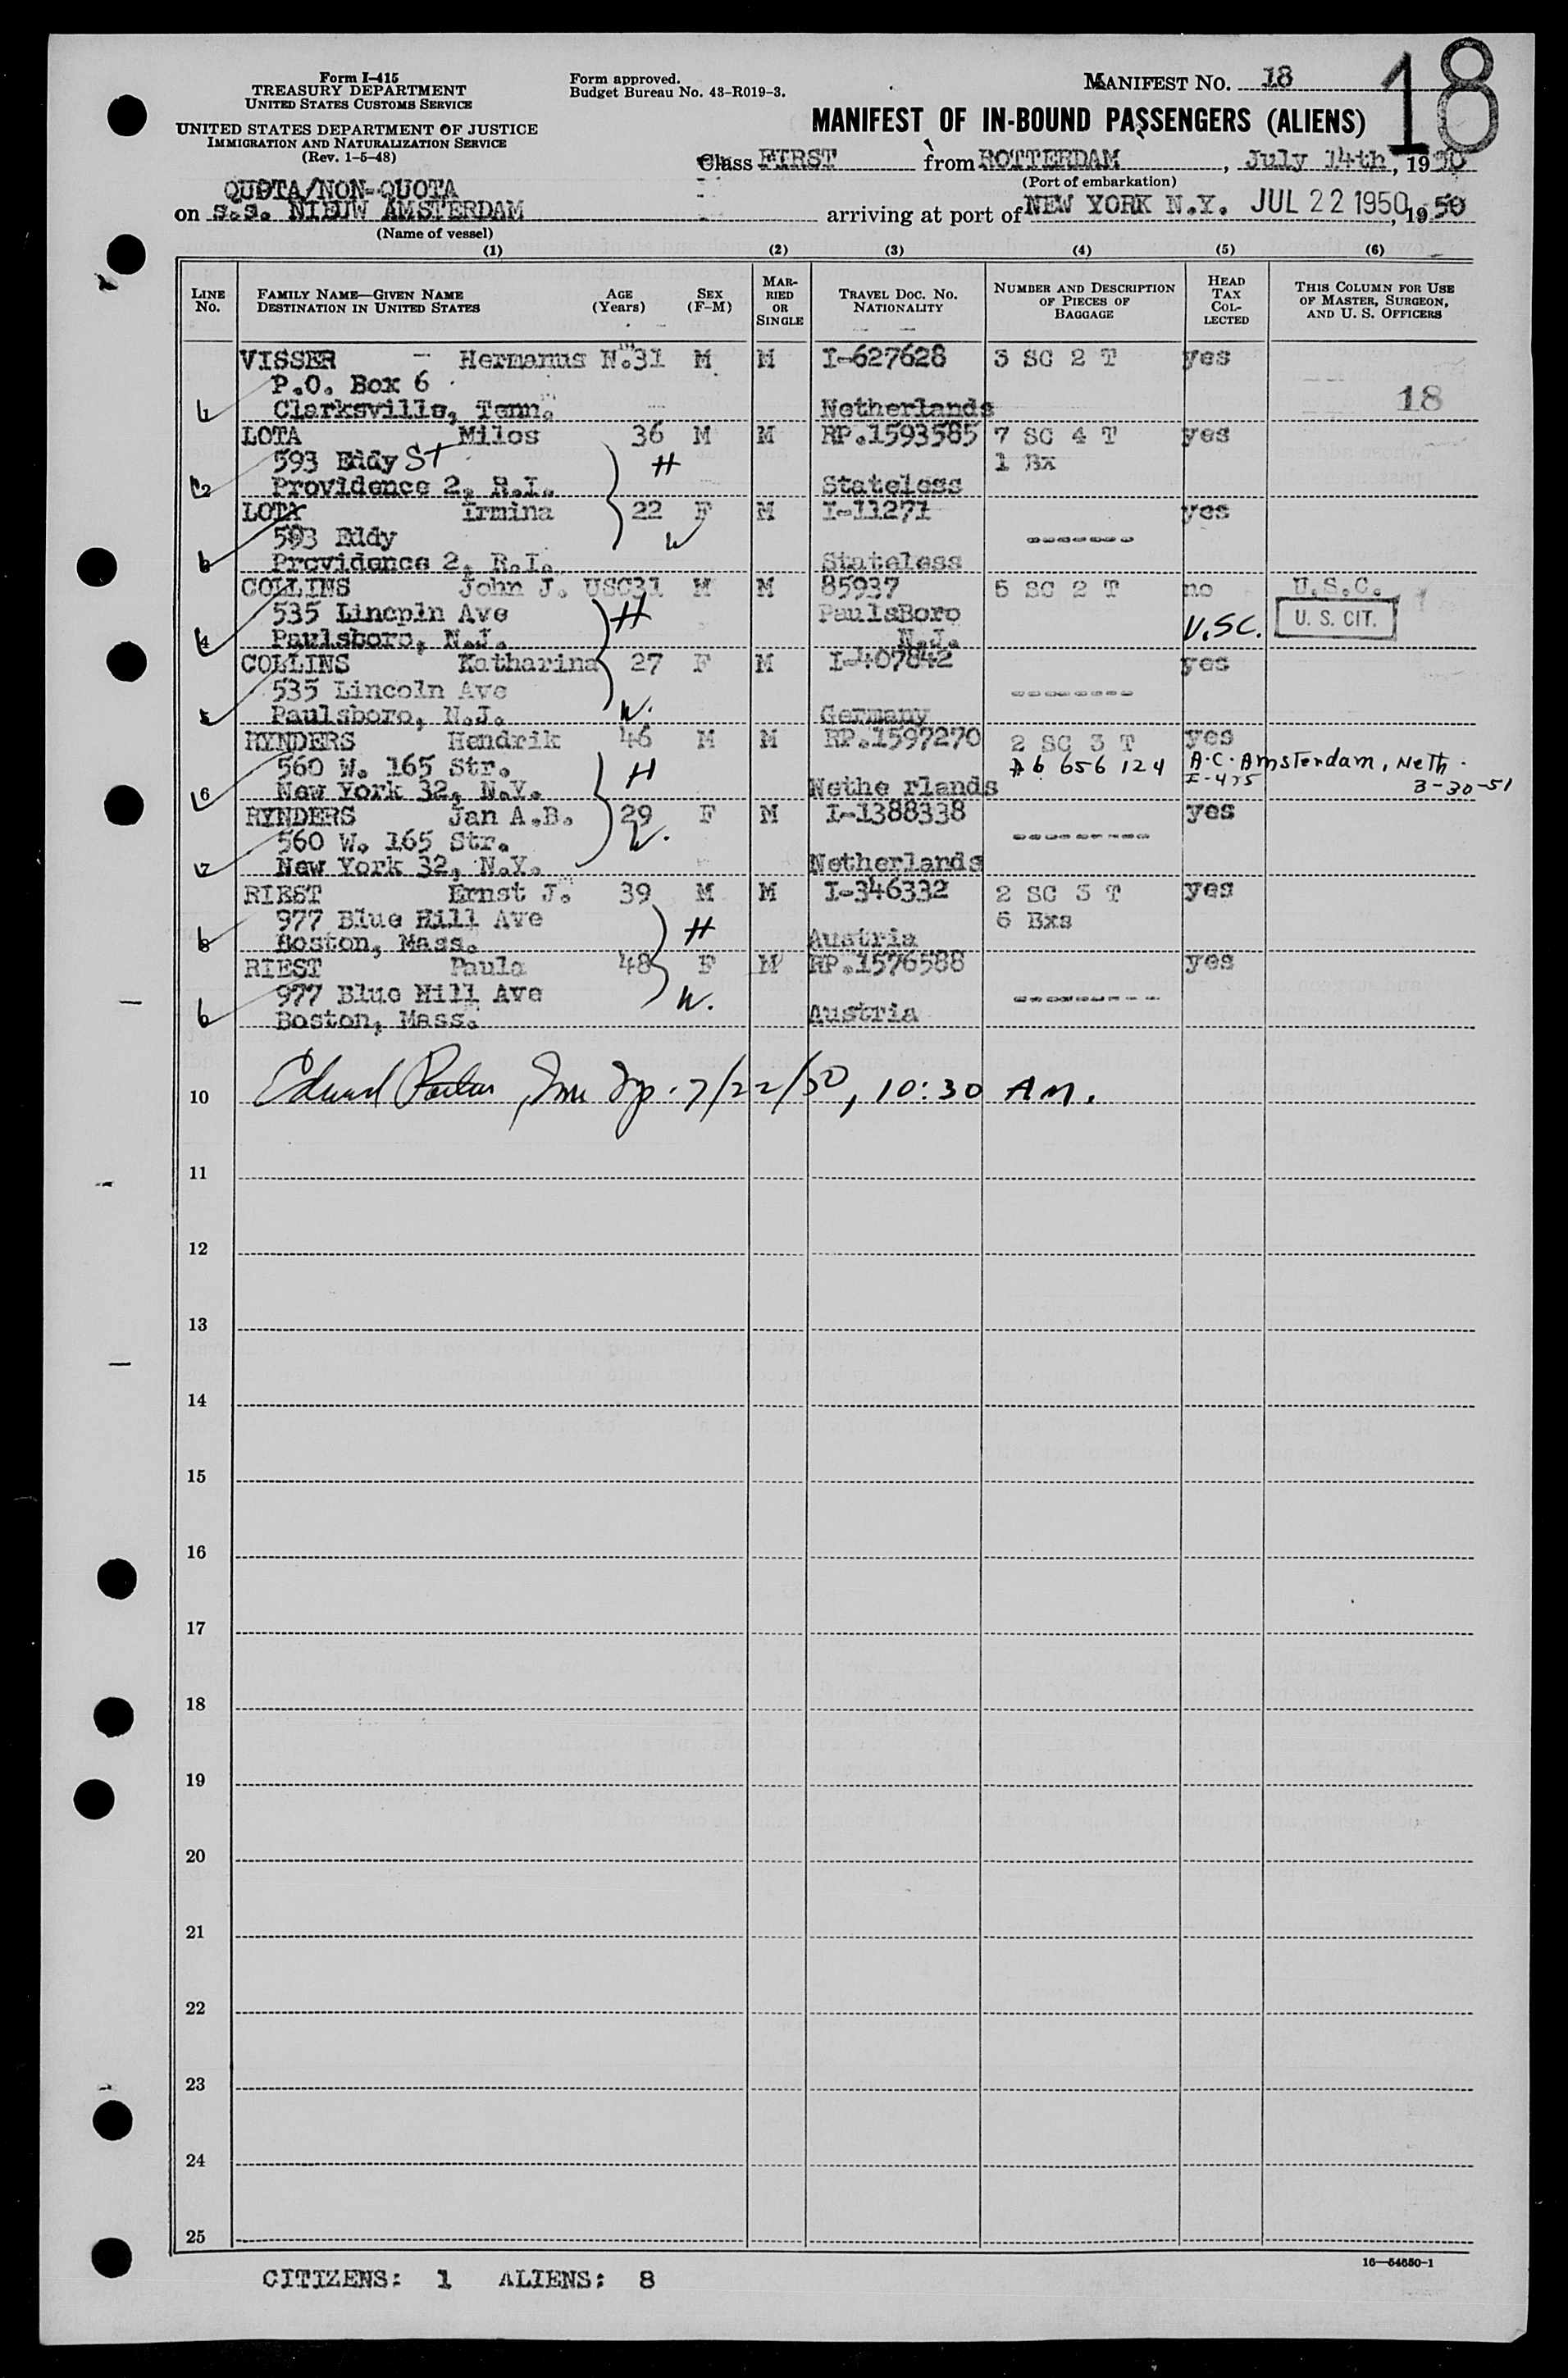 Form I-415
TREASURY DEPARTMENT
UNITED STATES CUSTOMS SERVICE
UNITED STATES DEPARTMENT OF JUSTICE
IMMIGRATION AND NATURALIZATION SERVICE
(Rev. 1-5-48)
Form approved.
Budget Bureau No. 43-R019-3.
MANIFEST NO. 18
18
MANIFEST OF IN-BOUND PASSENGERS (ALIENS)
Class FIRST from ROTTERDAM, July 14th, 1950
(Port of embarkation)
QUOTA/NON-QUOTA
on s.s. NIEUW AMSTERDAM arriving at port of NEW YORK N.Y. JUL 22 1950, 1950
(Name of vessel)
(1) (2) (3) (4) (5) (6)
LINE NO.
FAMILY NAME—GIVEN NAME
DESTINATION IN UNITED STATES
AGE (Years)
SEX (F-M)
MARRIED OR SINGLE
TRAVEL DOC. NO.
NATIONALITY
NUMBER AND DESCRIPTION OF PIECES OF BAGGAGE
HEAD TAX COLLECTED
THIS COLUMN FOR USE OF MASTER, SURGEON, AND U. S. OFFICERS
VISSER - Hermanus N. 31 M M I-627628 3 SC 2 T yes
P.O. Box 6
1 Clarksville, Tenn. Netherlands 18
LOTA Milos 36 M M RP.1593585 7 SC 4 T yes
593 Eddy St H 1 Bx
2 Providence 2, R.I. Stateless
LOTA Irmina 22 F M I-11271 yes
593 Eddy W -------
3 Providence 2, R.I. Stateless
COLLINS John J. USC 31 M M 85937 5 SC 2 T no U.S.C.
535 Lincpln Ave H PaulsBoro U. S. CIT.
4 Paulsboro, N.J. N.J. U.S.C.
COLLINS Katharina 27 F M I-407842 yes
535 Lincoln Ave --------
5 Paulsboro, N.J. W. Germany
RYNDERS Hendrik 46 M M RP.1597270 2 SC 3 T yes
560 W. 165 Str. H A6 656 124 A.C. Amsterdam, Neth.
6 New York 32, N.Y. Nethe rlands I-475 3-30-51
RYNDERS Jan A.B. 29 F M I-1388338 yes
560 W. 165 Str. W. ---------
7 New York 32, N.Y. Netherlands
RIEST Ernst J. 39 M M I-346332 2 SC 3 T yes
977 Blue Hill Ave H 6 Bxs
8 Boston, Mass. Austria
RIEST Paula 48 F M RP.1576588 yes
977 Blue Hill Ave W. ---------
Boston, Mass. Austria
10 Edward , Imm Isp. 7/22/50, 10:30 AM.
11
12
13
14
15
16
17
18
19
20
21
22
23
24
25
16—54650-1
CITIZENS: 1 ALIENS: 8